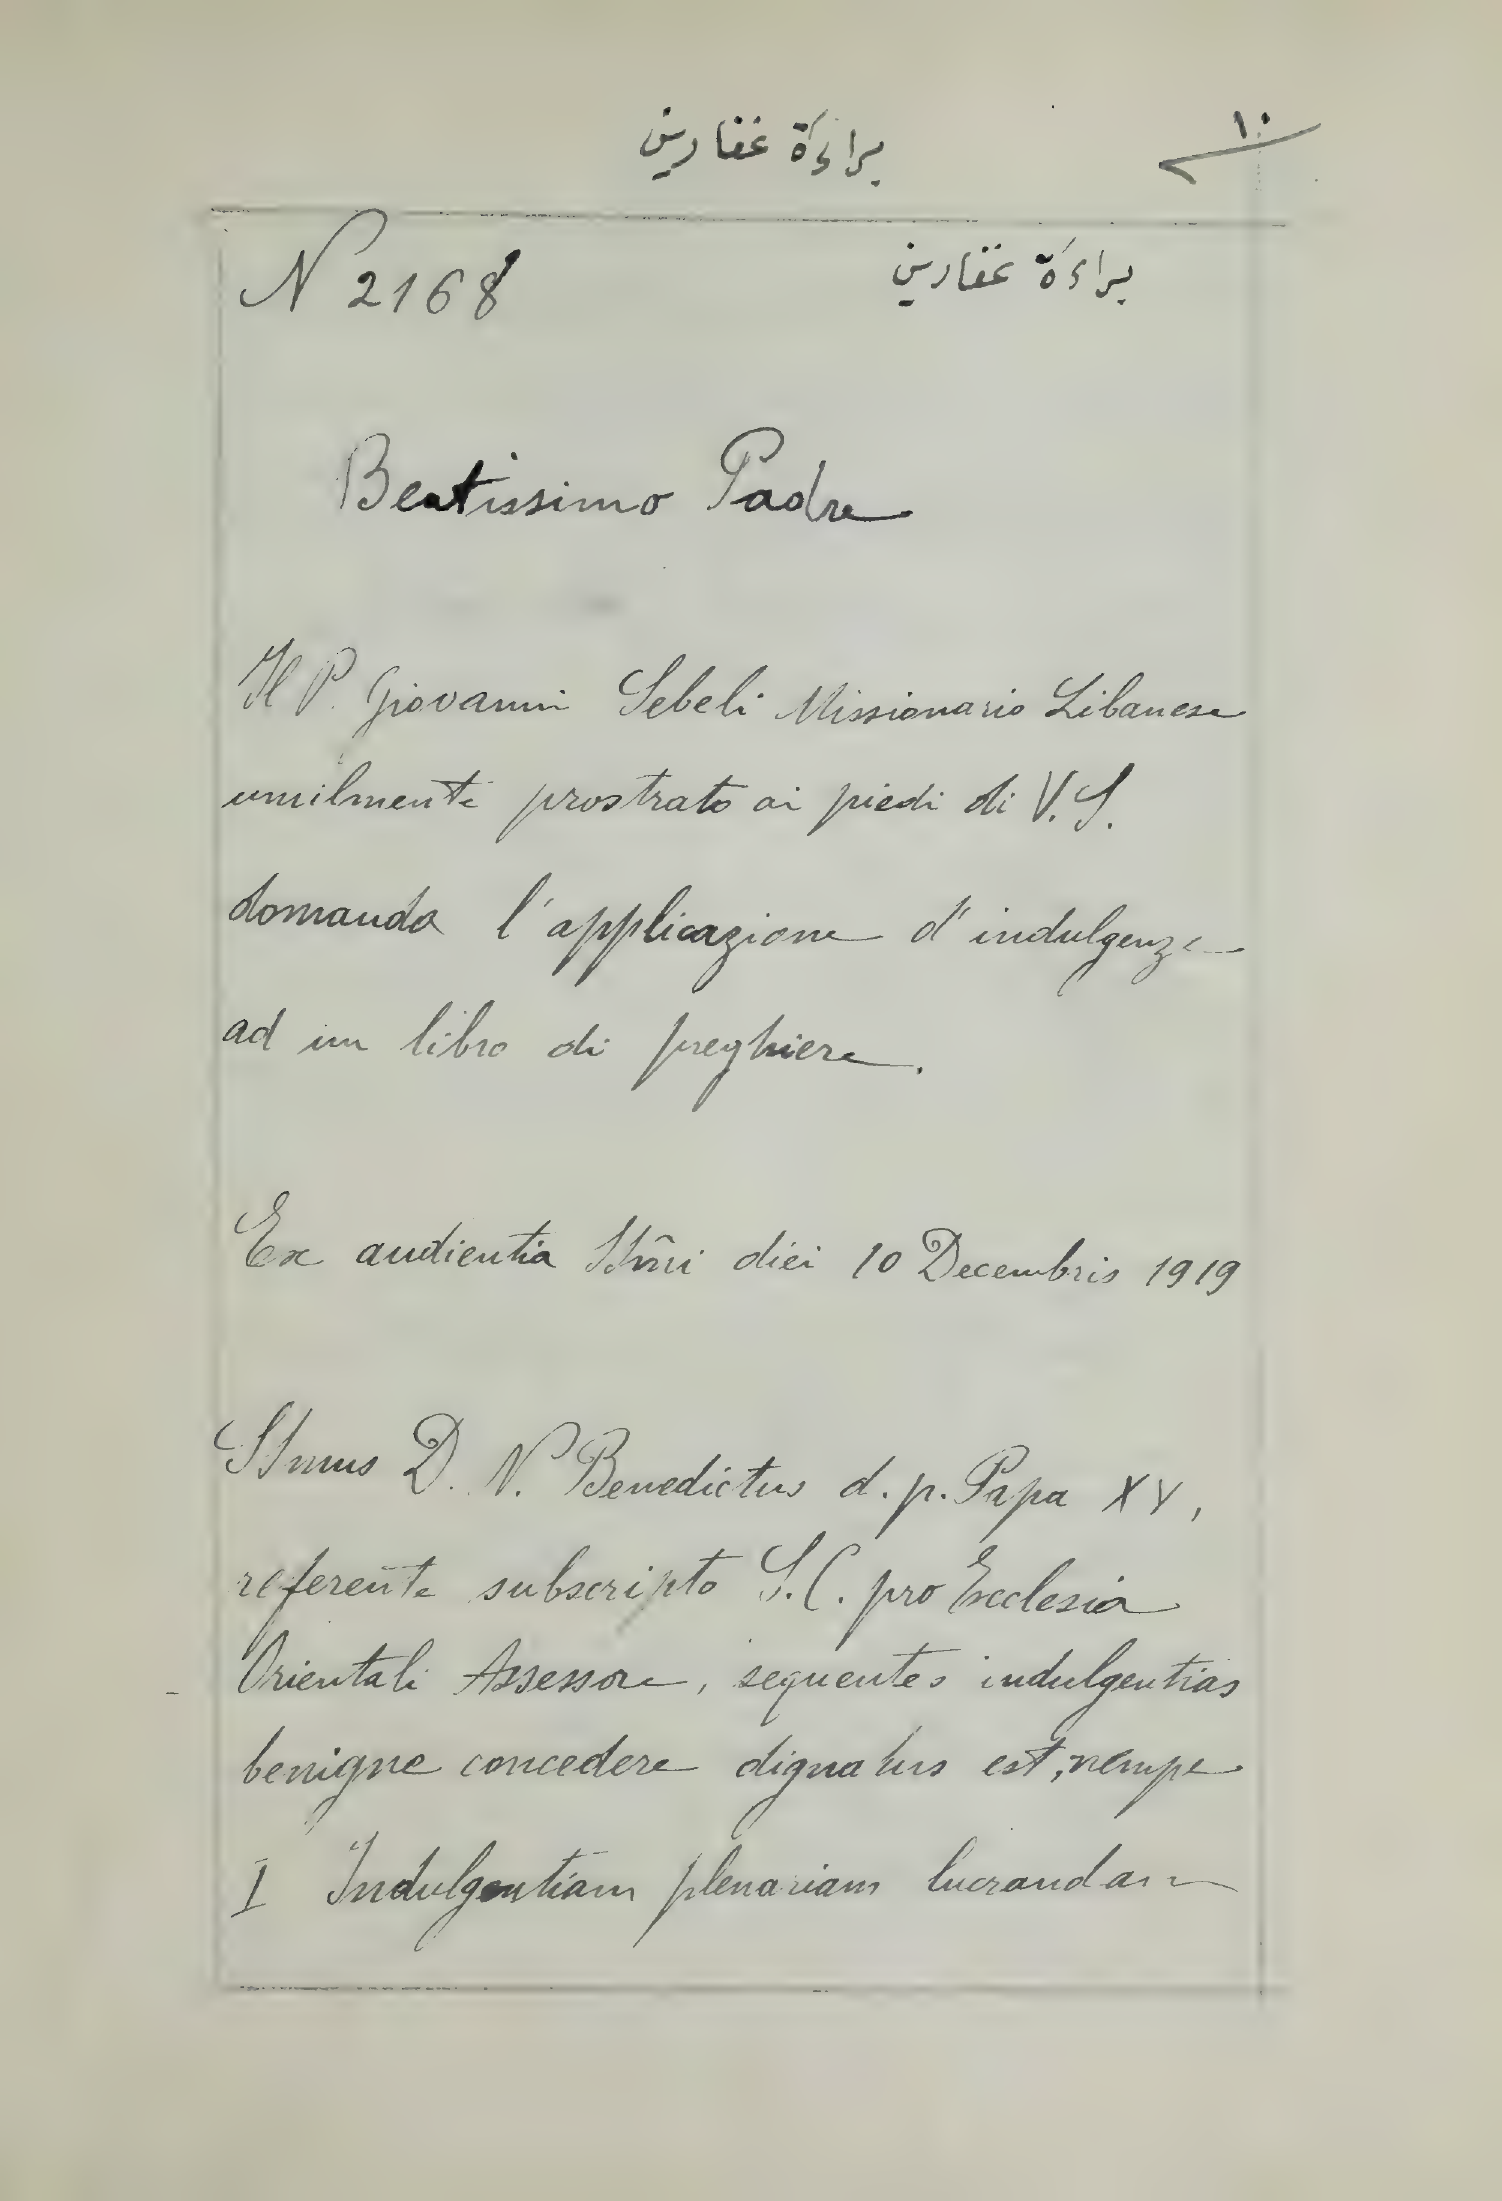 ١٠
براءة غفارين
N 2168
براءة غفارين
Beatissimo Padre
Il P. Giovanni Sebeli Missionario Libanese
umilmente prostrato ai piedi di V. S.
domanda l'applicazione d'indulgenze
ad un libro di preghiere.
Ex audientia SSm̂i diei 10 Decembris 1919
SSmus D. N. Benedictus d. p. Papa XV,
referente subscripto S. C. pro Ecclesia
Orientali Assessore, sequentes indulgentias
benigne concedere dignatus est, nempe
I Indulgentiam plenariam lucrandam